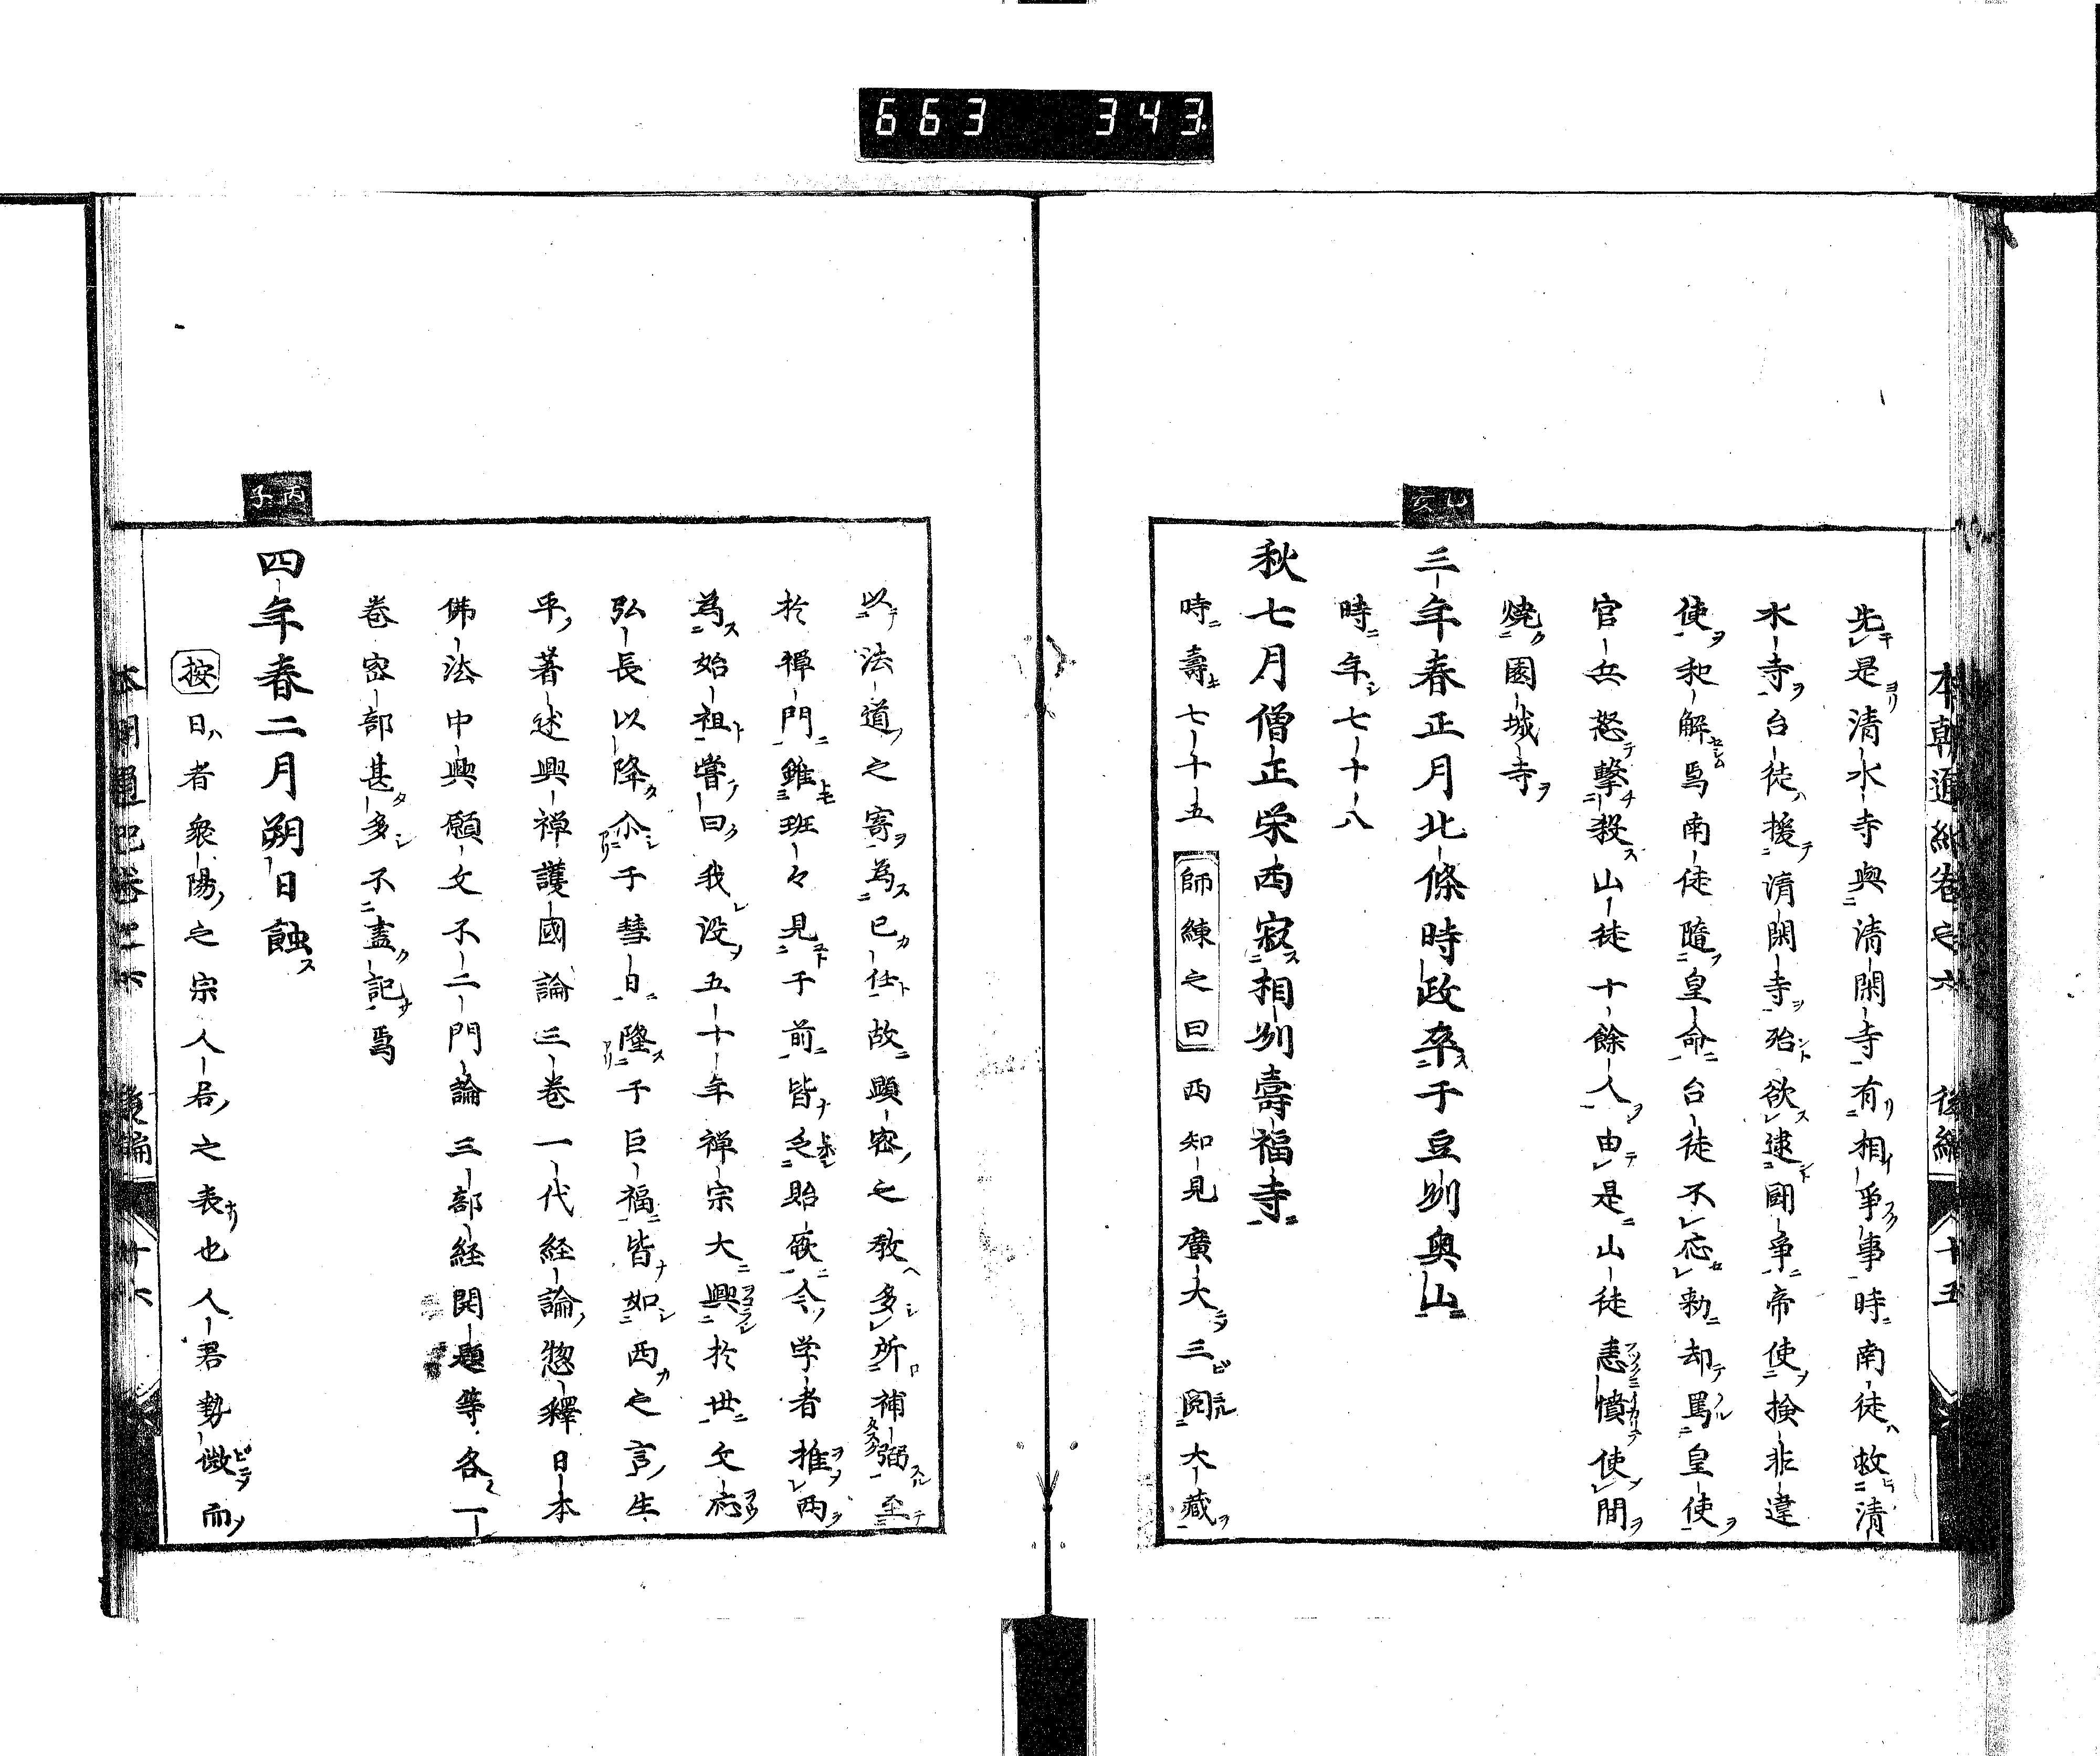 663 343
本朝通紀卷之六 後編 十五
先是清水寺與清閑寺有相爭事時南徒救清
水寺台徒援清閑寺殆欲逮鬪爭帝使撿非違
使和解焉南徒隨皇命台徒不応勅却罵皇使
官兵怒擊殺山徒十餘人由是山徒恚憤使間
燒園城寺
乙亥
三年春正月北條時政卒于豆州奥山
時年七十八
秋七月僧正栄西寂相州壽福寺
時壽七十五 師練之曰 西知見廣大三閲大藏
以法道之寄為已任故顕密之教多所補弼至
於禪門雖班々見于前皆乏貽厥今学者推西
為始祖嘗曰我没五十年禅宗大興於世文応
弘長以降尒于彗日隆于巨福皆如西之言生
平著述興禅護國論三卷一代経論惣釋日本
佛法中興願文不二門論三部経開題等各一
卷密部甚多不盡記焉
丙子
四年春二月朔日蝕
按日者衆陽之宗人君之表也人君勢微而
後編 廿六